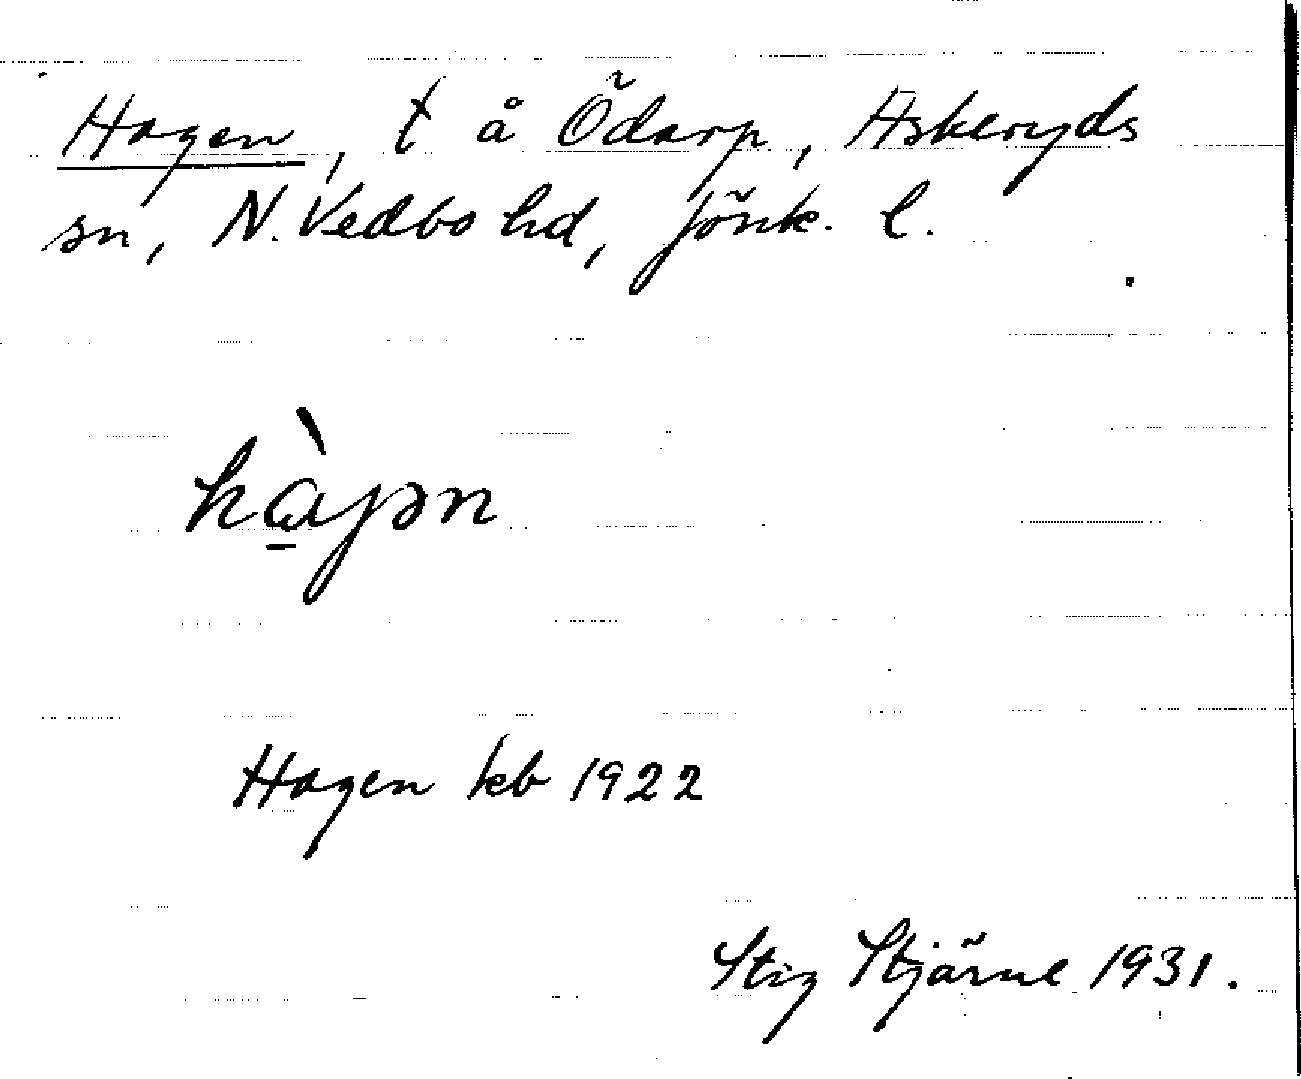 Hagen, t å Ödarp, Askeryds
sn, N. Vedbo hd, Jönk. l.
hàɡən
Hagen kb 1922
Stig Stjärne 1931.